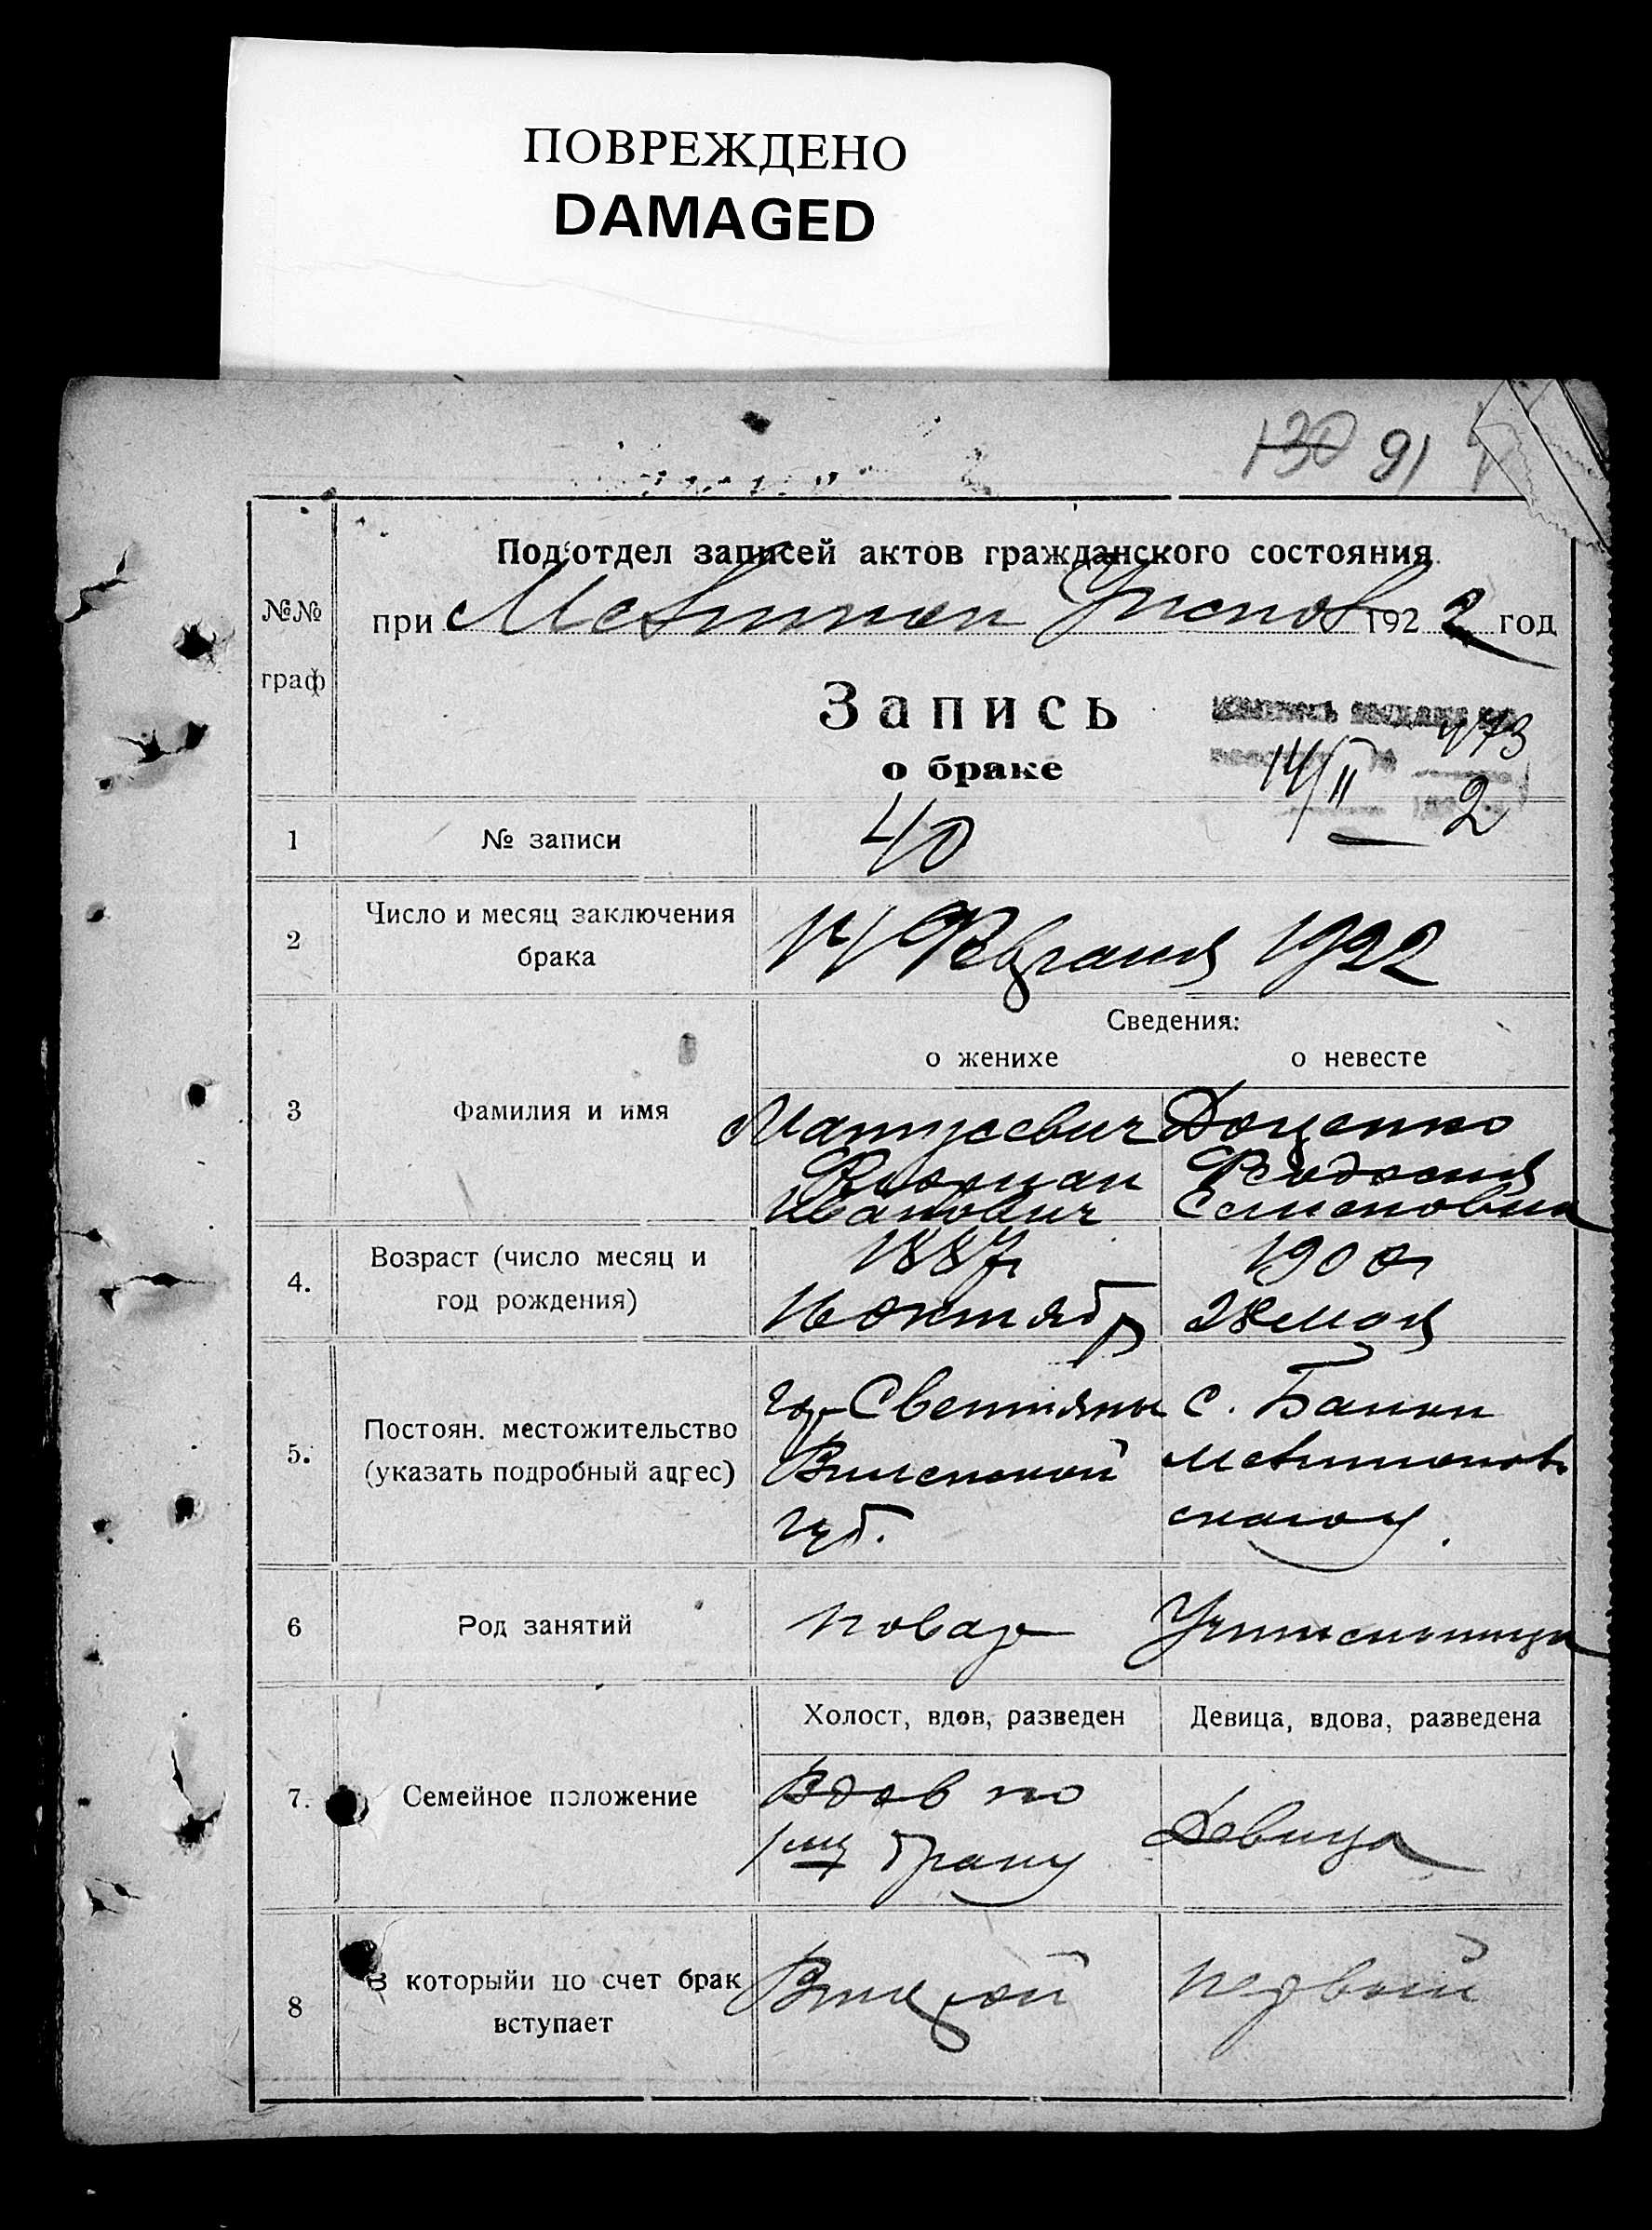 ПОВРЕЖДЕНО
DAMAGED
130 91
Под'отдел записей актов гражданского состояния
№№ граф
при 1922 год
Запись
о браке
14/II 2
1 № записи 40
2 Число и месяц заключения брака
14 Февраля 1922
Сведения:
о женихе о невесте
3 Фамилия и имя
Матусевич Доценко
Феодосия
Иванович Семеновна
4. Возраст (число месяц и год рождения)
1887г 1900г
16 октябр 28 мая
5. Постоян. местожительство (указать подробный адрес)
гор Свентяны с. Банки
Виленской
губ.
6 Род занятий
повар Учительница
Холост, вдов, разведен Девица, вдова, разведена
7. Семейное положение
Вдов по Девица
1му браку
8 В которыйи по счет брак вступает
Второй первый